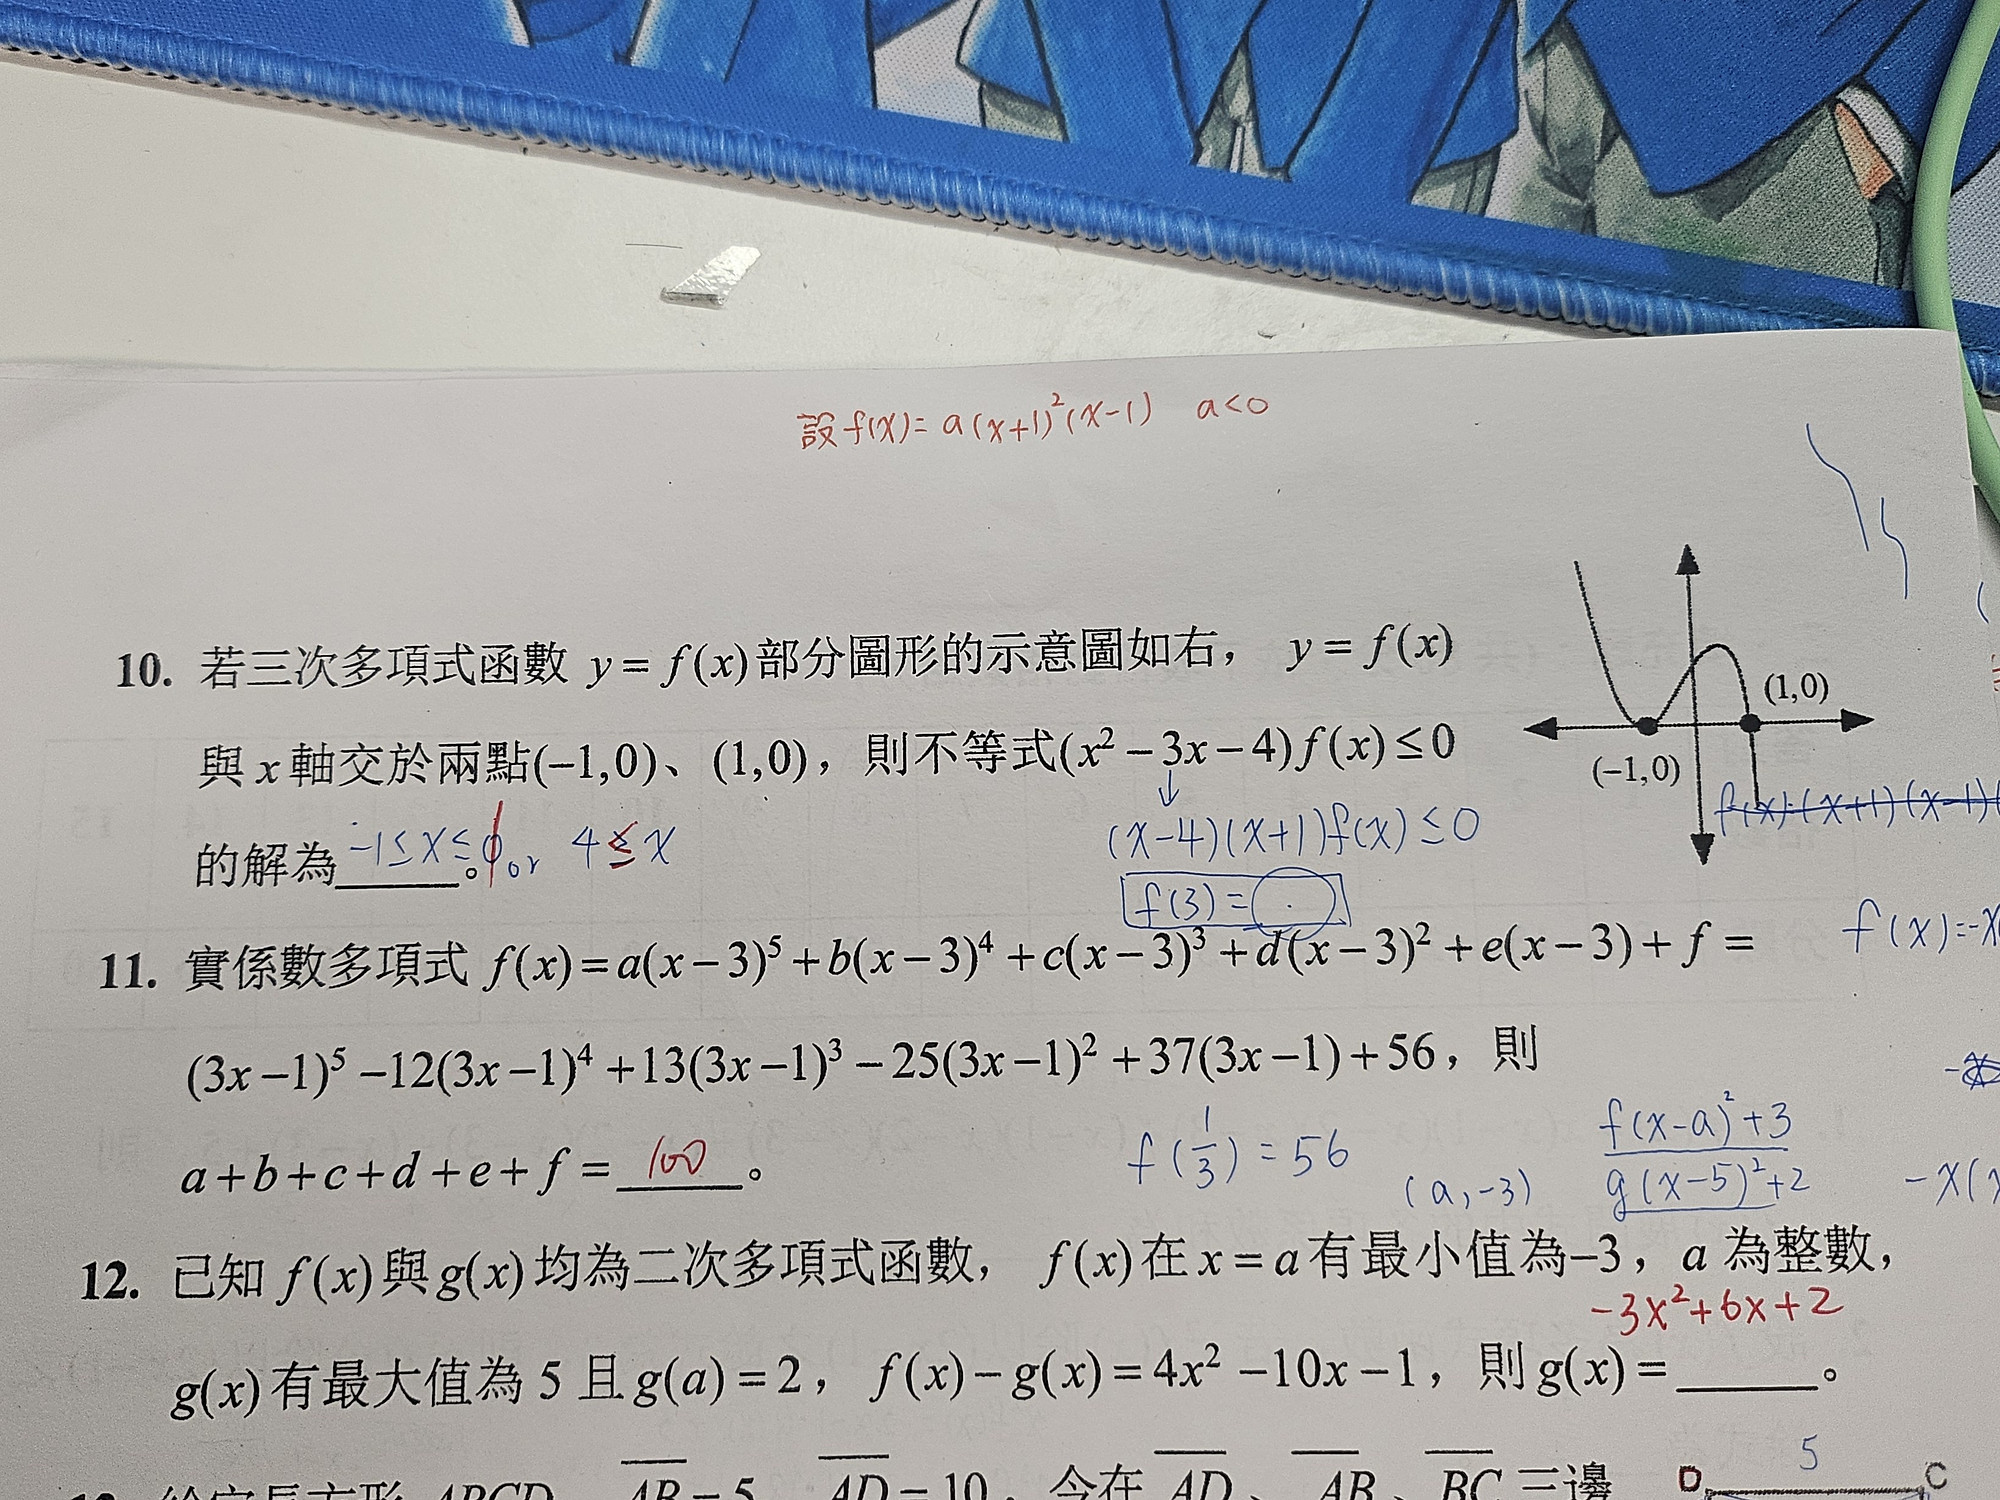 設 f(x)= a(x+1)²(x-1) a<0
10. 若三次多項式函數 y = f(x)部分圖形的示意圖如右， y = f(x)
(1,0)
與 x 軸交於兩點(−1,0)、(1,0)，則不等式(x² − 3x − 4)f(x) ≤ 0
(−1,0)
f(x)=(x+1)(x-1)(
(x-4)(x+1)f(x) ≤ 0
的解為 -1≤x≤1 。or 4≤x
f(3) =
11. 實係數多項式 f(x) = a(x − 3)⁵ + b(x − 3)⁴ + c(x − 3)³ + d(x − 3)² + e(x − 3) + f =
f(x)=-x
(3x − 1)⁵ − 12(3x − 1)⁴ + 13(3x − 1)³ − 25(3x − 1)² + 37(3x − 1) + 56，則
f(x-a)²+3
f(1/3) = 56
a + b + c + d + e + f = 100 。
(a,-3)
g(x-5)²+2
-x(
12. 已知 f(x)與g(x)均為二次多項式函數， f(x)在 x = a有最小值為−3，a 為整數，
-3x²+6x+2
g(x)有最大值為 5 且g(a) = 2， f(x) − g(x) = 4x² − 10x − 1，則g(x) = 。
5
D C
ABCD AB = 5 AD = 10，今在 AD、AB、BC 三邊